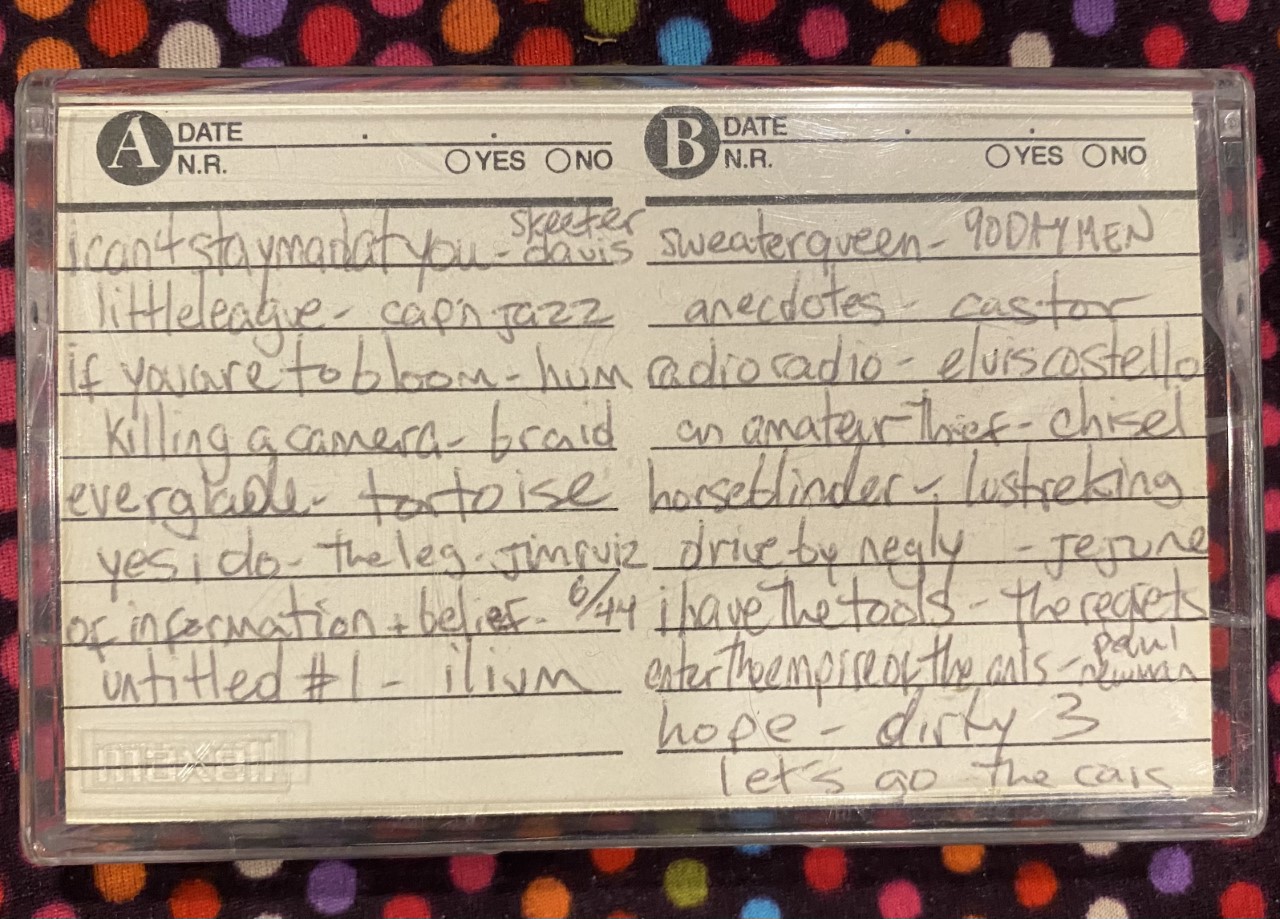 A DATE . .
N.R. YES NO
i can't stay mad at you - skeeter davis
little league - cap'n jazz
if you are to bloom - hum
killing a camera - braid
everglade - tortoise
yes i do - the leg. jim ruiz
of information + belief - 6/44
untitled #1 - ilium
maxell
B DATE . .
N.R. YES NO
sweater queen - 90 DAY MEN
anecdotes - castor
radio radio - elvis costello
an amateur thief - chisel
horseblinder - lustre king
drive by negly - jejune
i have the tools - the regrets
enter the empire of the ants - paul newman
hope - dirty 3
let's go the cars